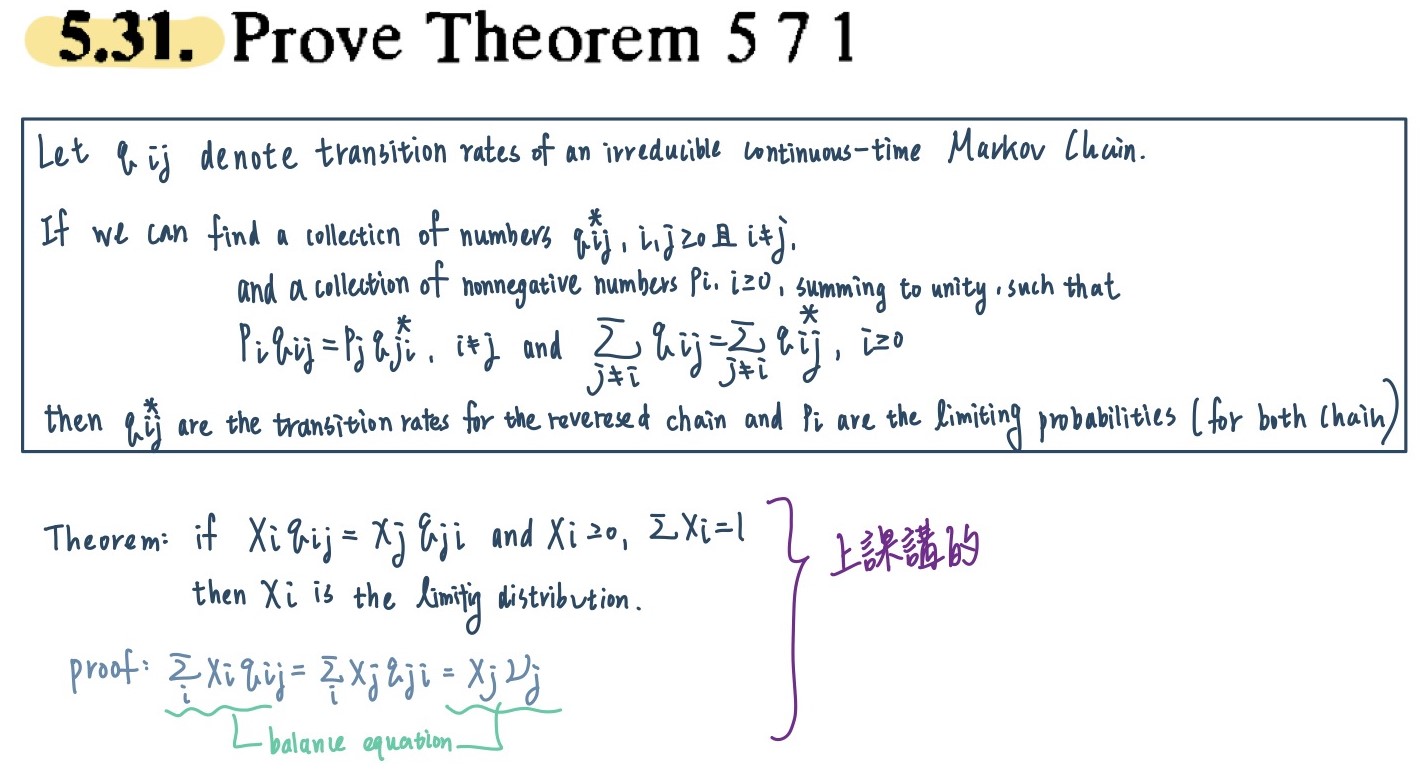 5.31. Prove Theorem 5 7 1
Let qij denote transition rates of an irreducible continuous-time Markov Chain.
If we can find a collection of numbers q*ij, i,j≥0 且 i≠j,
and a collection of nonnegative numbers Pi, i≥0, summing to unity, such that
Pi qij = Pj q*ji, i≠j and Σ_{j≠i} qij = Σ_{j≠i} q*ij, i≥0
then q*ij are the transition rates for the reveresed chain and Pi are the limiting probabilities (for both chain)
Theorem: if Xi qij = Xj qji and Xi ≥0, ΣXi=1
then Xi is the limitig distribution.
上課講的
proof: Σ_i Xi qij = Σ_i Xj qji = Xj νj
balance equation